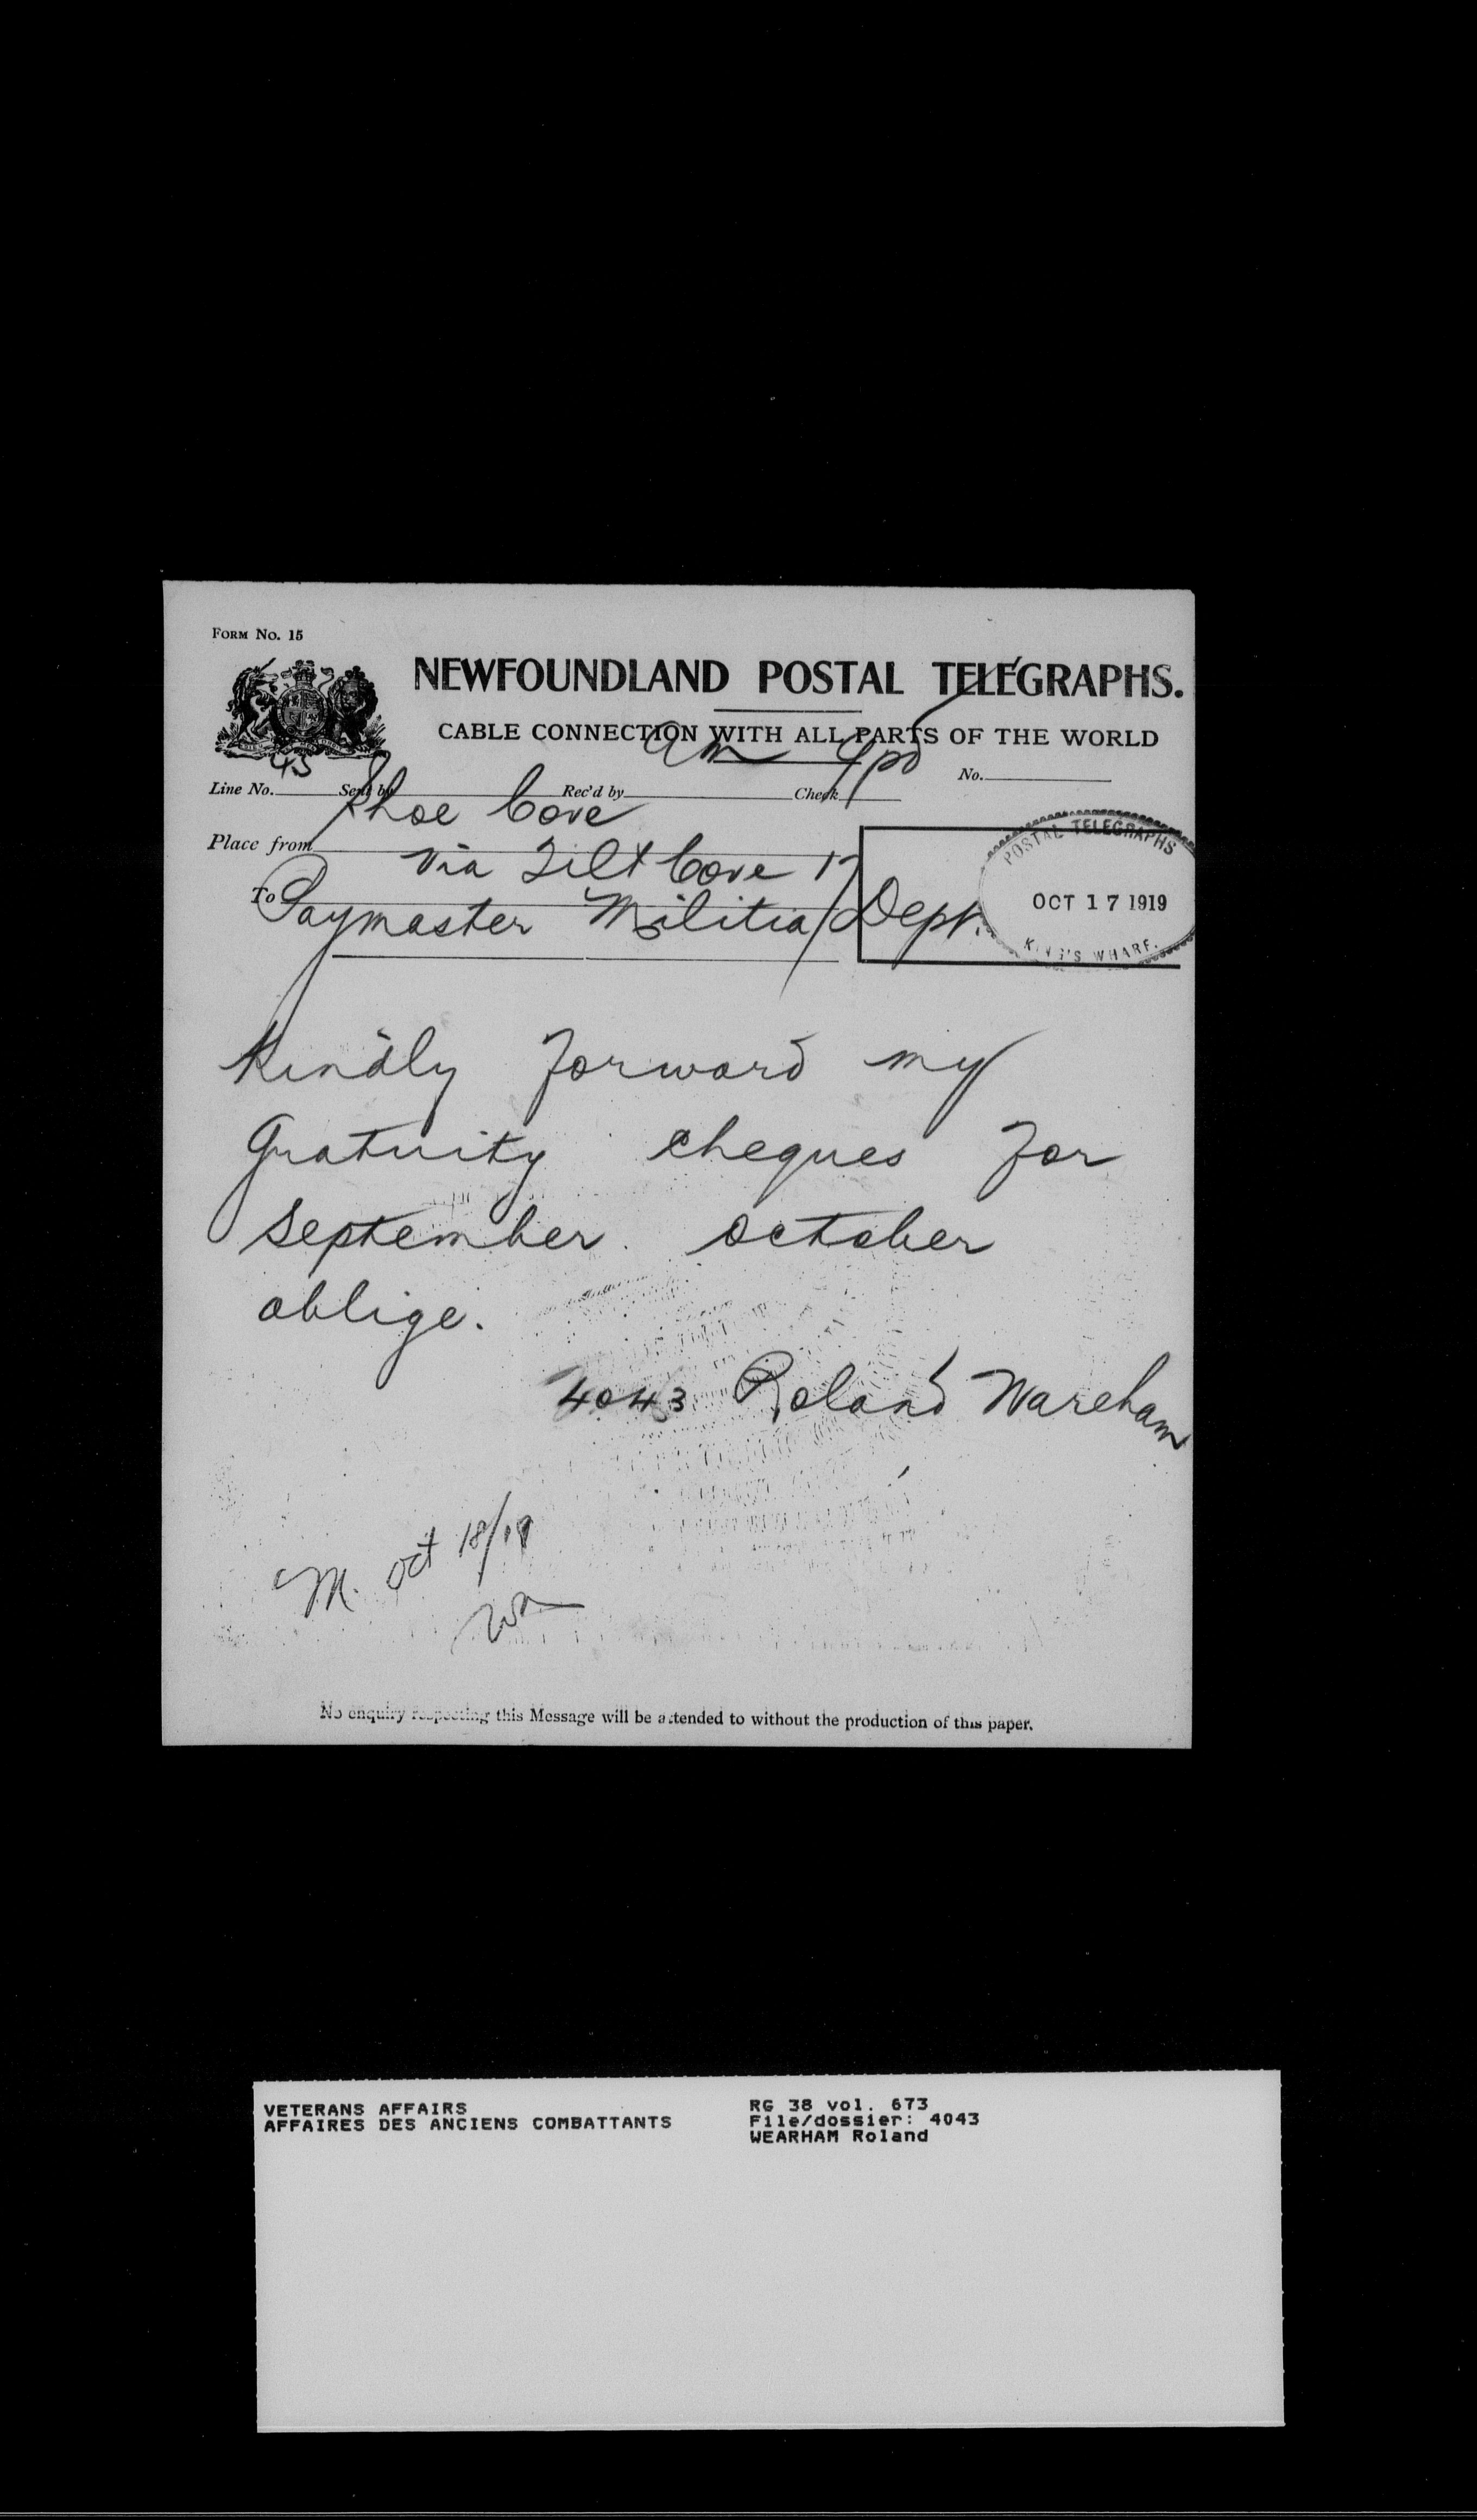 FORM No. 15
NEWFOUNDLAND POSTAL TELEGRAPHS.
CABLE CONNECTION WITH ALL PARTS OF THE WORLD
Line No. 43 Sent by Rec'd by Check 9pd No.
Place from Shoe Cove
via Tilt Cove 17
To Paymaster Militia Dept.
POSTAL TELEGRAPHS
OCT 17 1919
KING'S WHARF.
Kindly forward my
Gratuity cheques for
September. October
oblige.
4043 Roland Wareham
M. Oct 18/19
No enquiry respecting this Message will be attended to without the production of this paper.
VETERANS AFFAIRS
AFFAIRES DES ANCIENS COMBATTANTS
RG 38 vol. 673
File/dossier: 4043
WEARHAM Roland